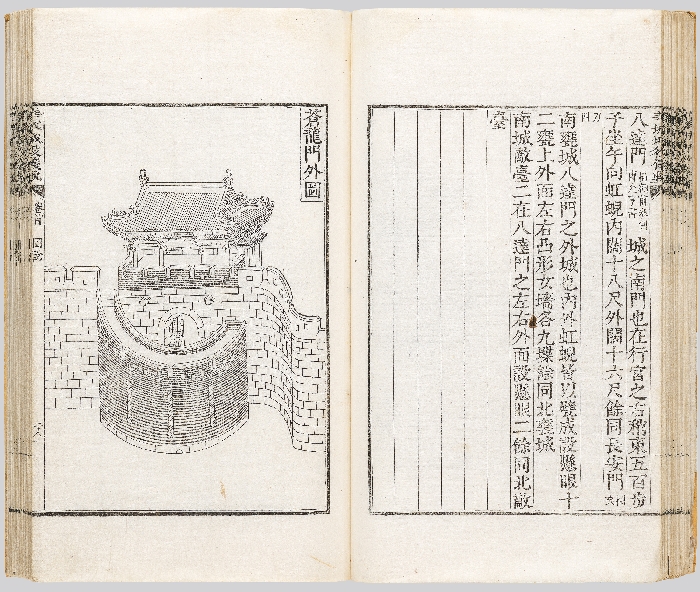 八達門城之南門也在行宮之右稍東五百步
子坐午向虹蜺內闊十八尺外闊十六尺餘同長安門
南甕城八達門之外城也內外虹蜺皆以甓成設懸眼十
二甕上外面左右凸形女墻各九堞餘同北甕城
南城敵臺二在八達門之左右外面設懸眼二餘同北敵
臺
蒼龍門外圖
卷首 圖說